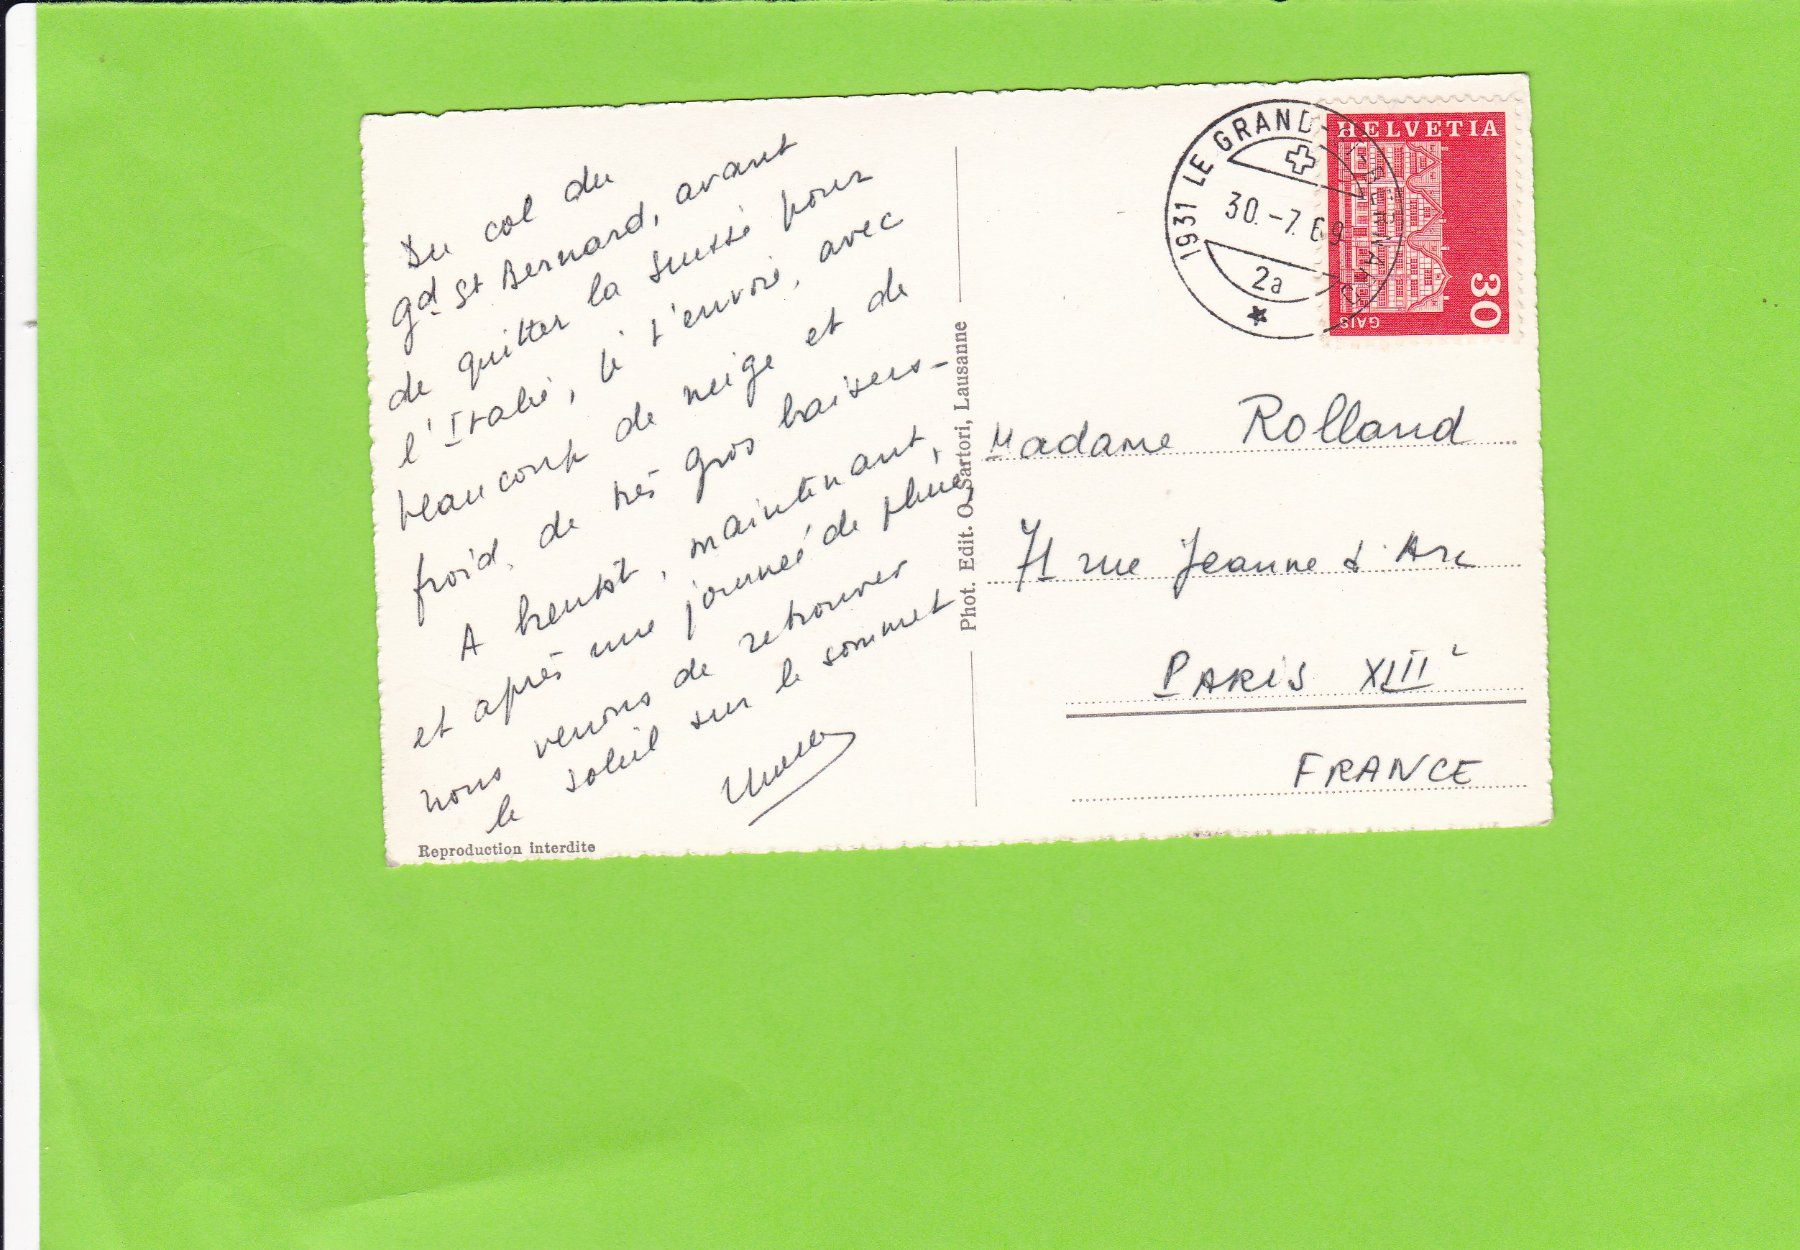 Du col du
gd St Bernard, avant
de quitter la Suisse pour
l'Italie, je t'envoie, avec
beaucoup de neige et de
froid, de très gros baisers-
A bientôt, maintenant,
et après une journée de pluie,
nous venons de retrouver
le soleil sur le sommet
Reproduction interdite
Phot. Edit. O. Sartori, Lausanne
1931 LE GRAND-ST-BERNARD
30.-7.69
2a
HELVETIA
30
GAIS
Madame Rolland
71 rue Jeanne d'Arc
PARIS XIIIe
FRANCE